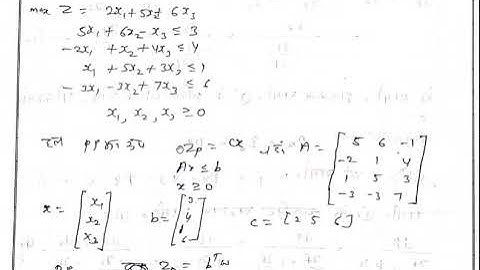 max Z = 2x₁+5x₂+6x₃
5x₁+6x₂-x₃ ≤ 3
-2x₁ +x₂+4x₃ ≤ 4
x₁ +5x₂+3x₃ ≤ 1
-3x₁ -3x₂+7x₃ ≤ 6
x₁, x₂, x₃ ≥ 0
हल PP का रूप Zp = cx जहाँ A = [5 6 -1
-2 1 4
1 5 3
-3 -3 7]
Ax ≤ b
x ≥ 0
x = [x₁
x₂
x₃] b = [3
4
1
6] c = [2 5 6]
bᵀω